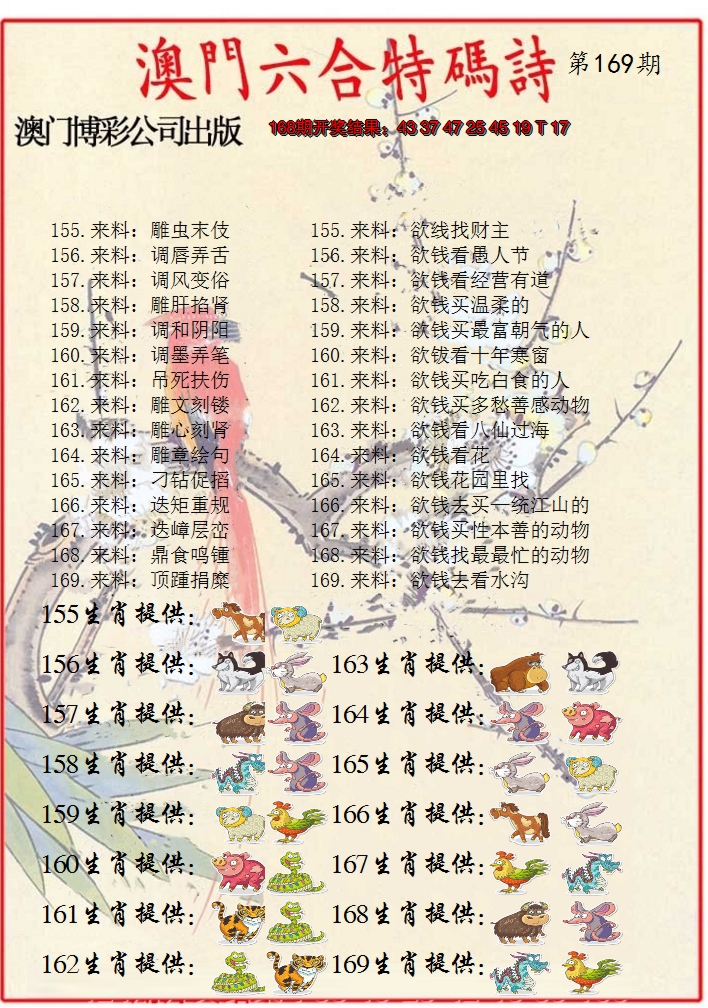 澳門六合特碼詩 第169期
澳门博彩公司出版 168期开奖结果：43 37 47 25 45 19 T 17
155.来料：雕虫末伎 155.来料：欲线找财主
156.来料：调唇弄舌 156.来料：欲钱看愚人节
157.来料：调风变俗 157.来料：欲钱看经营有道
158.来料：雕肝掐肾 158.来料：欲钱买温柔的
159.来料：调和阴阳 159.来料：欲钱买最富朝气的人
160.来料：调墨弄笔 160.来料：欲钹看十年寒窗
161.来料：吊死扶伤 161.来料：欲钱买吃白食的人
162.来料：雕文刻镂 162.来料：欲钱买多愁善感动物
163.来料：雕心刻肾 163.来料：欲钱看八仙过海
164.来料：雕章绘句 164.来料：欲钱看花
165.来料：刁钻促搯 165.来料：欲钱花园里找
166.来料：迭矩重规 166.来料：欲钱去买一统江山的
167.来料：迭嶂层峦 167.来料：欲钱买性本善的动物
168.来料：鼎食鸣锺 168.来料：欲钱找最最忙的动物
169.来料：顶踵捐糜 169.来料：欲钱去看水沟
155生肖提供：
156生肖提供： 163生肖提供：
157生肖提供： 164生肖提供：
158生肖提供： 165生肖提供：
159生肖提供： 166生肖提供：
160生肖提供： 167生肖提供：
161生肖提供： 168生肖提供：
162生肖提供： 169生肖提供：